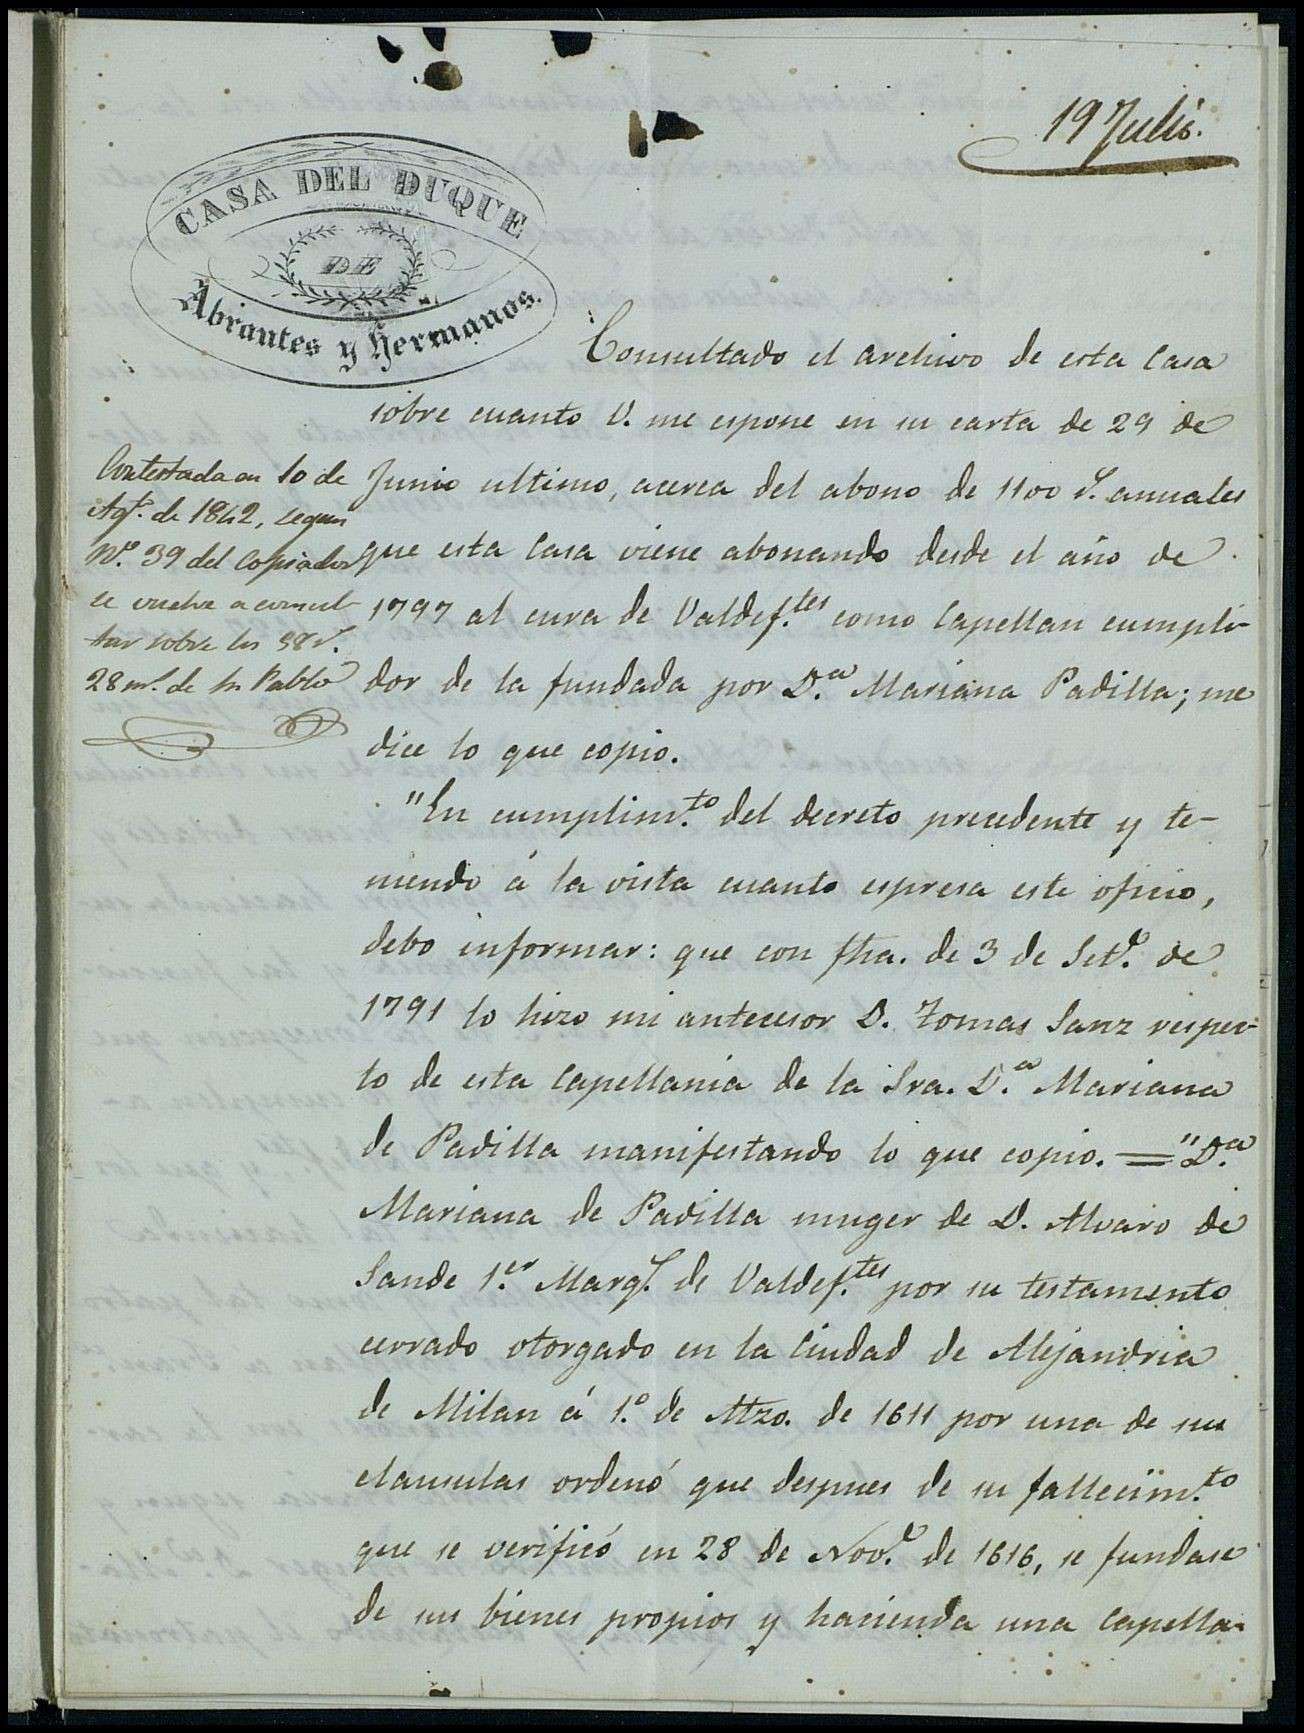 19 Julio.
CASA DEL DUQUE
DE
Abrantes y Hermanos.
Consultado el archivo de esta Casa
sobre cuanto V. me espone en su carta de 29 de
Junio ultimo, acerca del abono de 1100 r.s anuales
que esta Casa viene abonando desde el año de
1797 al cura de Valdef.tes como Capellan cumpli-
dor de la fundada por D.a Mariana Padilla; me
dice lo que copio.
Contestada en 10 de
Agt.o de 1842, segun
N.o 39 del Copiador
se vuelve a consul-
tar sobre los 98 r.s
28 m.s de Sn Pablo
"En cumplim.to del decreto precedente y te-
niendo á la vista cuanto espresa este oficio,
debo informar: que con fha. de 3 de Set.e de
1791 lo hizo mi antecesor D. Tomas Sanz respec-
to de esta Capellanía de la Sra. D.a Mariana
de Padilla manifestando lo que copio. = "D.a
Mariana de Padilla muger de D. Alvaro de
Sande 1.er Marq.s de Valdef.tes por su testamento
cerrado otorgado en la Ciudad de Alejandria
de Milan á 1.o de Mzo. de 1611 por una de sus
clausulas ordenó que despues de su fallecim.to
que se verificó en 28 de Nov.e de 1616, se fundase
de sus bienes propios y hacienda una Capella-